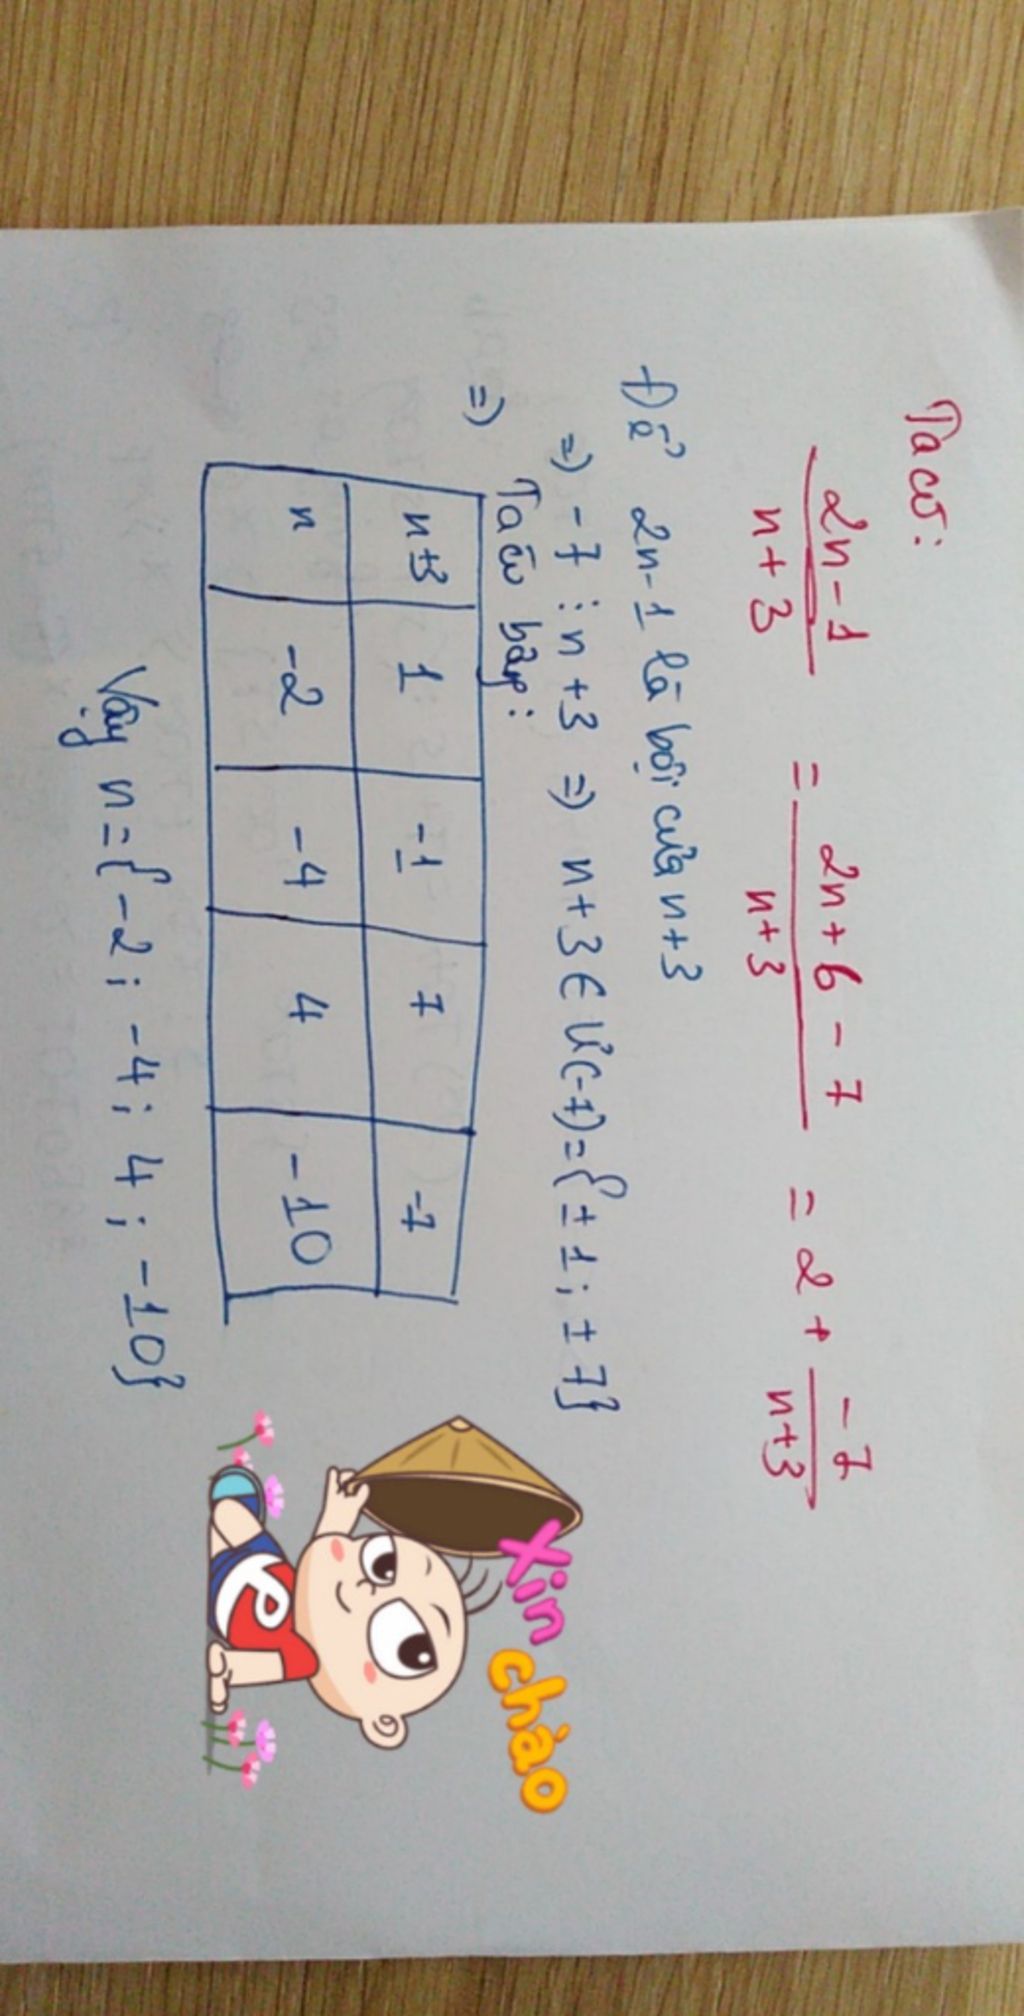 Ta có:
2n-1 / n+3 = 2n+6-7 / n+3 = 2 + -7 / n+3
Để 2n-1 là bội của n+3
=) -7 ⋮ n+3 =) n+3 ∈ Ư(-7)={±1; ±7}
Ta có bảng:
=)
n+3 1 -1 7 -7
n -2 -4 4 -10
Vậy n={-2; -4; 4; -10}
Xin chào